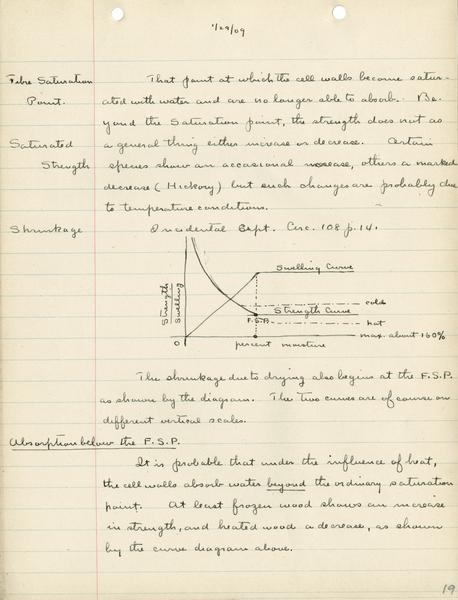 1/29/09
Fibre Saturation That point at which the cell walls become satur-
Point. ated with water and are no longer able to absorb. Be-
yond the Saturation point, the strength does not as
Saturated a general thing either increase or decrease. Certain
Strength species show an occasional increase, others a marked
decrease (Hickory) but such changes are probably due
to temperature conditions.
Shrinkage Incidental Expt. Circ. 108 p. 14.
Swelling Curve
Strength
Swelling
cold
Strength Curve
F.S.P.
hot
O max. about 160%
percent moisture
The shrinkage due to drying also begins at the F.S.P.
as shown by the diagram. The two curves are of course on
different vertical scales.
Absorption below the F.S.P.
It is probable that under the influence of heat,
the cell walls absorb water beyond the ordinary saturation
point. At least frozen wood shows an increase
in strength, and heated wood a decrease, as shown
by the curve diagram above.
19